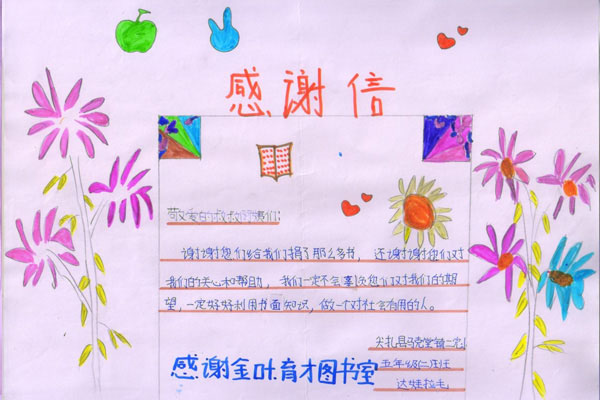 感谢信
敬爱的叔叔阿姨们:
谢谢您们给我们捐了那么多书，还谢谢您们对
我们的关心和帮助，我们一定不会辜负您们对我们的期
望，一定好好利用书面知识，做一个对社会有用的人。
尖扎县马克堂镇
五年级
达娃拉毛
感谢金叶育才图书室